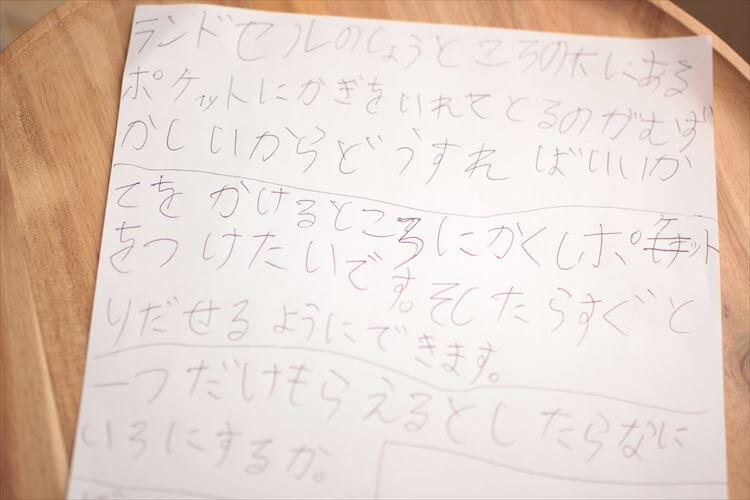 ランドセルのしょうところの大にある
ポケットにかぎをいれてとるのがむず
かしいからどうすればいいか
てをかけるところにかくしポケット
をつけたいです。そしたらすぐと
りだせるようにできます。
一つだけもらえるとしたらなに
いろにするか。